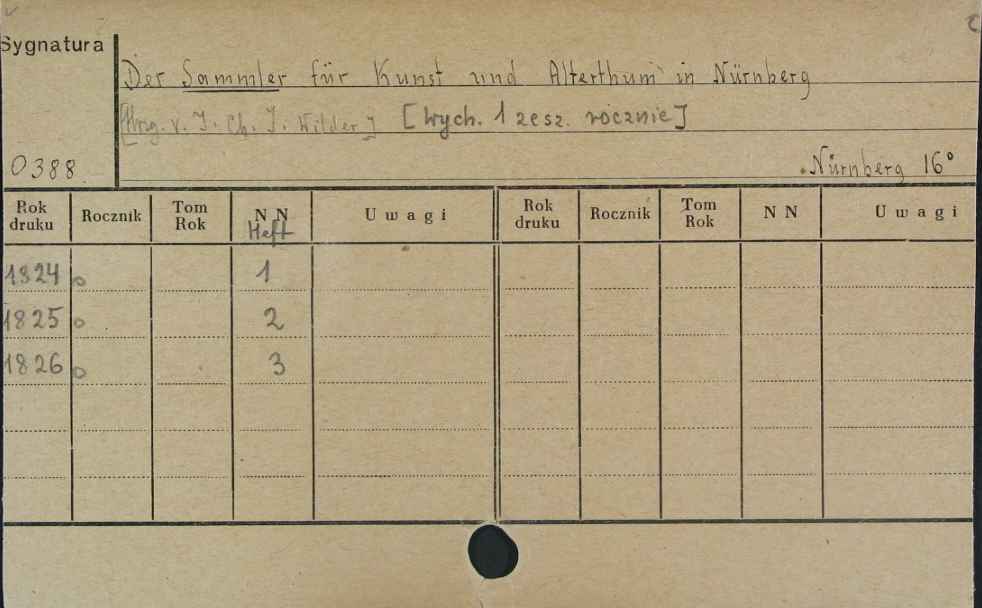 Sygnatura
Der Sammler für Kunst und Alterthum in Nürnberg
[Hrsg. v. J. Ch. J. Wilder] [Wych. 1 zesz. rocznie]
0388 Nürnberg 16°
Rok druku Rocznik Tom Rok NN Heft Uwagi Rok druku Rocznik Tom Rok NN Uwagi
1824 1
1825 2
1826 3